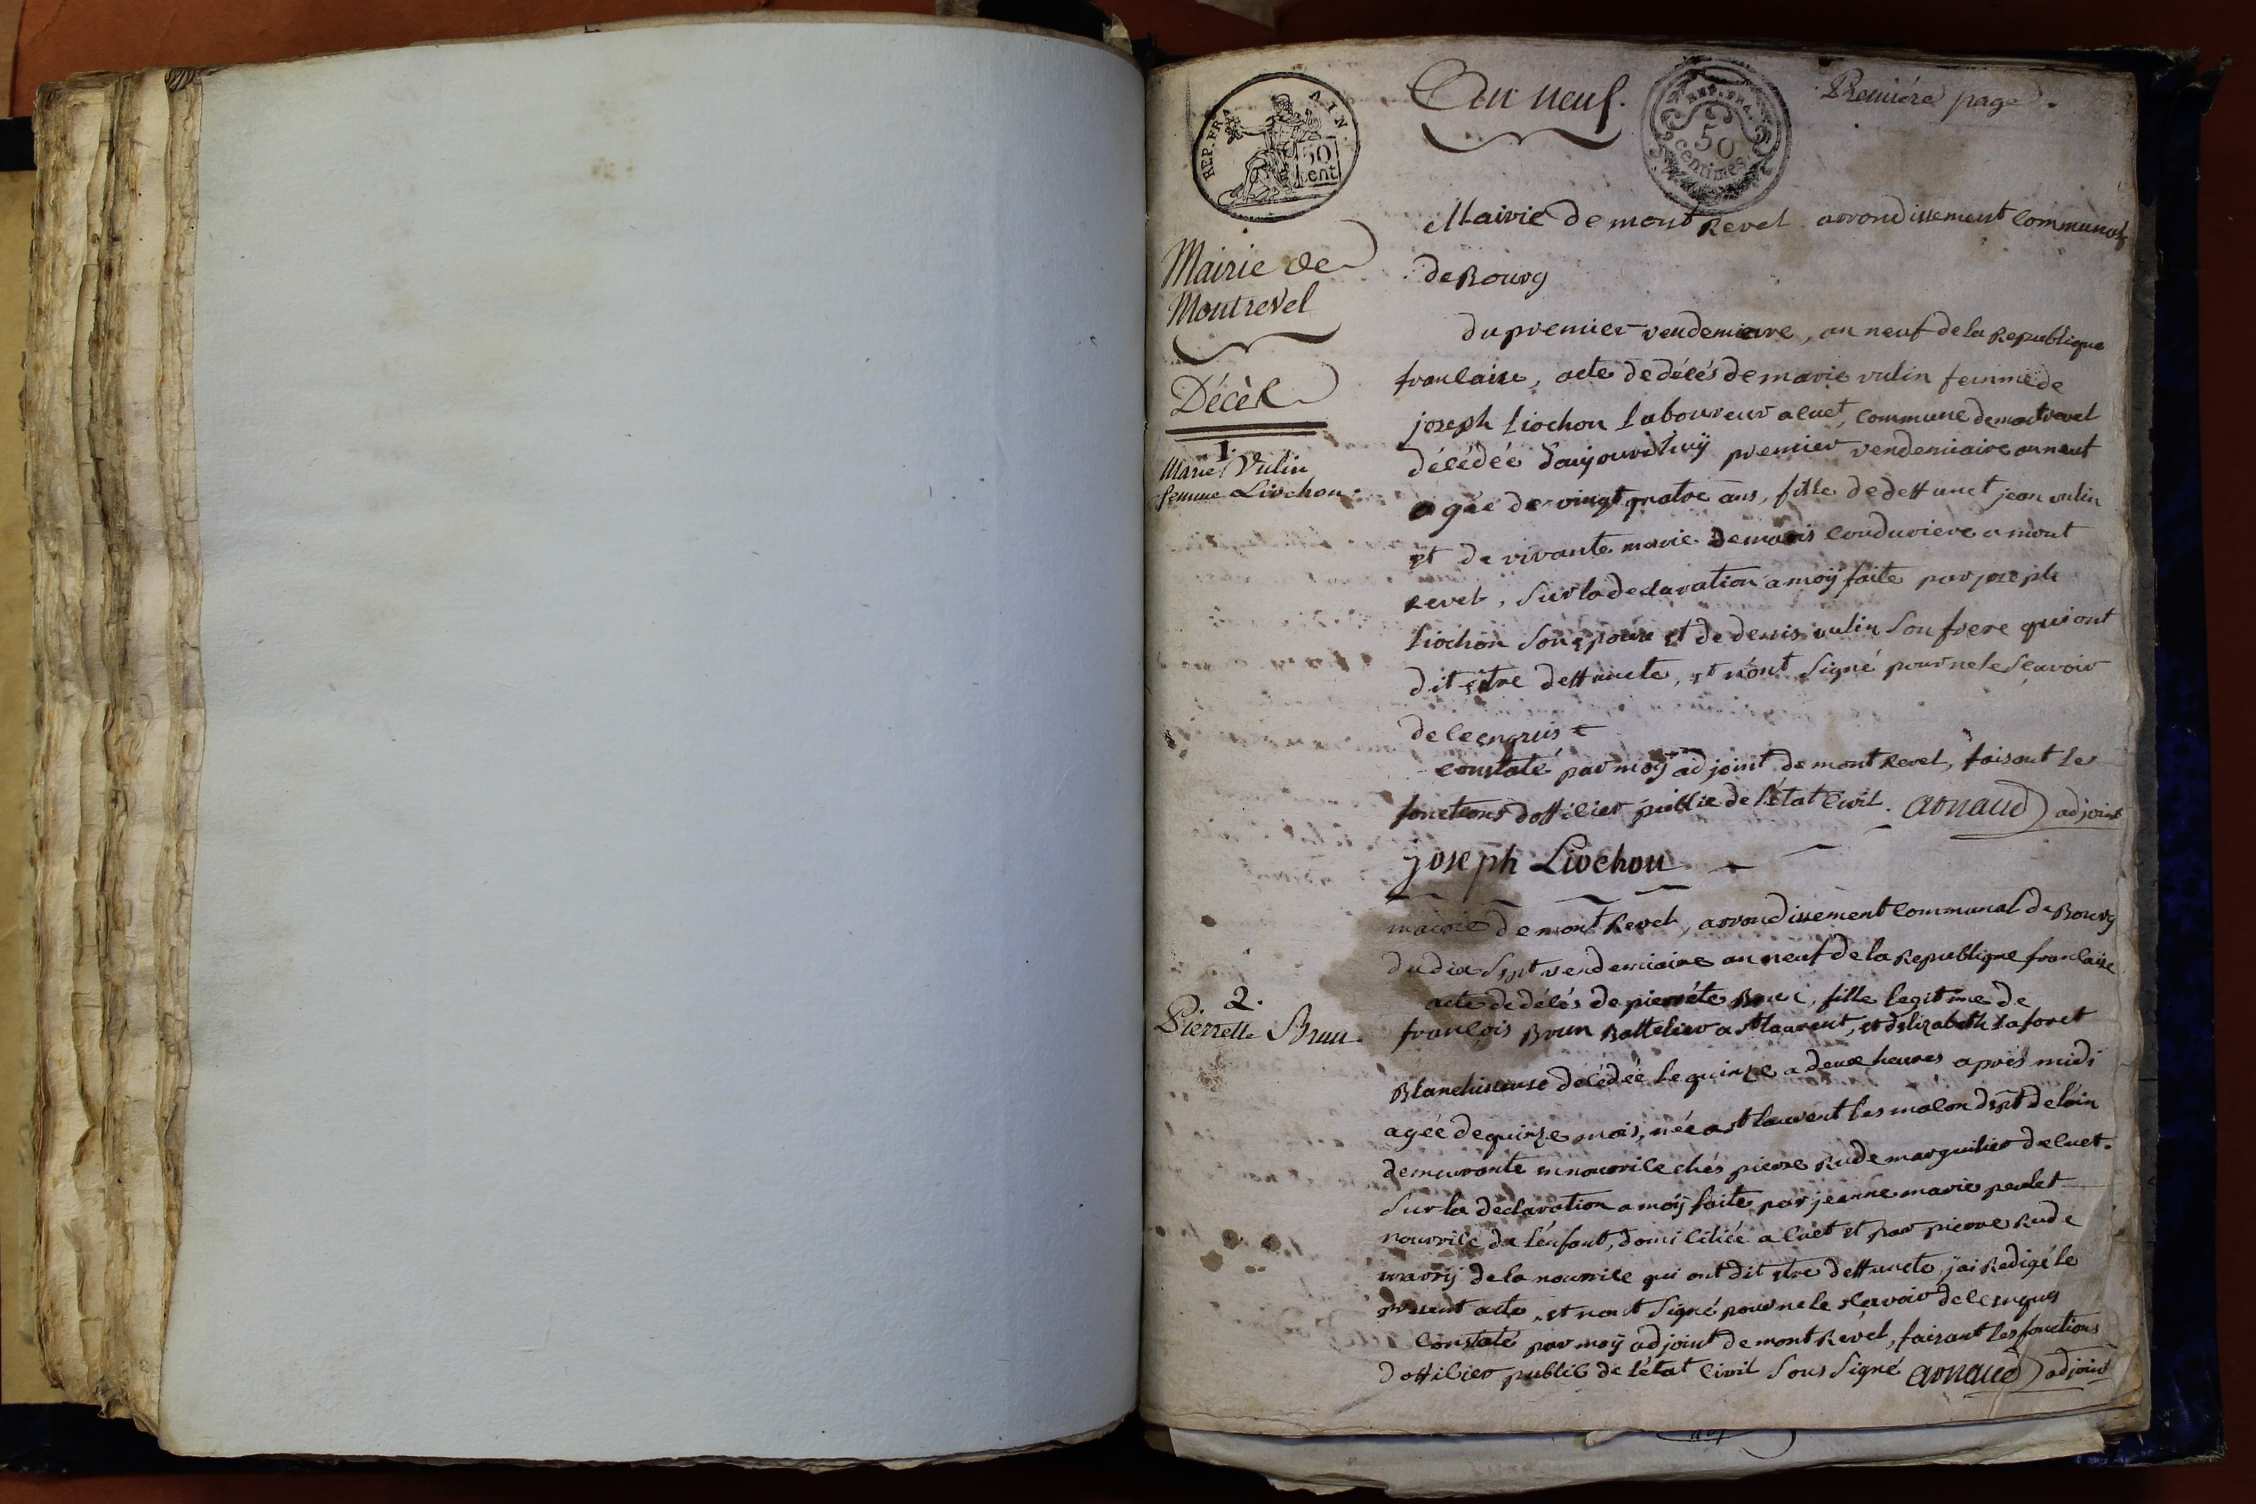 An neuf.
Premiére page.
REP. FRA. AIN.
50 cent
REP. FRA.
50
centimes
Mairie de
Montrevel
Décès
1.
Marie Vulin
femme Liochon.
Mairie de mont Revel arrondissement Communal
de Bourg
du premier vendemiaire, an neuf de la Republique
francaise, acte de décés de marie vulin femme de
joseph Liochon Laboureur a cuet, commune de montrevel
décédée daujourdhuÿ premier vendemiaire an neuf
agée de vingt quatre ans, fille de deffunct jean vulin
et de vivante marie demaris couduriere a mont
Revel, Sur la declaration a moÿ faite par joseph
Liochon Son epoux et de denis vulin Son frere qui ont
dit estre deffuncte, et n'ont Signé pour ne le Sçavoir
de ce enquis
constaté par moÿ adjoint de mont Revel, faisant les
fonctions dofficier public de l'état Civil. arnaud adjoint
joseph Liochon
2.
Pierrette Brun.
mairie de mont Revel, arrondissement Communal de Bourg
du dix Sept vendemiaire an neuf de la Republique francaise
acte de décés de pierréte Brun, fille legitime de
francois Brun Battelier a st laurent, et delizabeth laforet
Blanchisseuse décédée le quinze a deux heures aprés midi
agée de quinze mois, née a st laurent les macon dspt de l'ain
demeurante en nourrice chés pierre Rude marguilier de cuet.
Sur la declaration a moÿ faite par jeanne marie perdet
nourrice de l'enfant, domiciliée a cuet et par pierre Rude
marÿ de la nourrice qui ont dit etre deffuncte, j'ai Redigé le
present acte, et n'ont Signé pour ne le scavoir de ce enquis
Constaté par moÿ adjoint de mont Revel, faisant les fonctions
dofficier public de l'état Civil Sous Signé arnaud adjoint